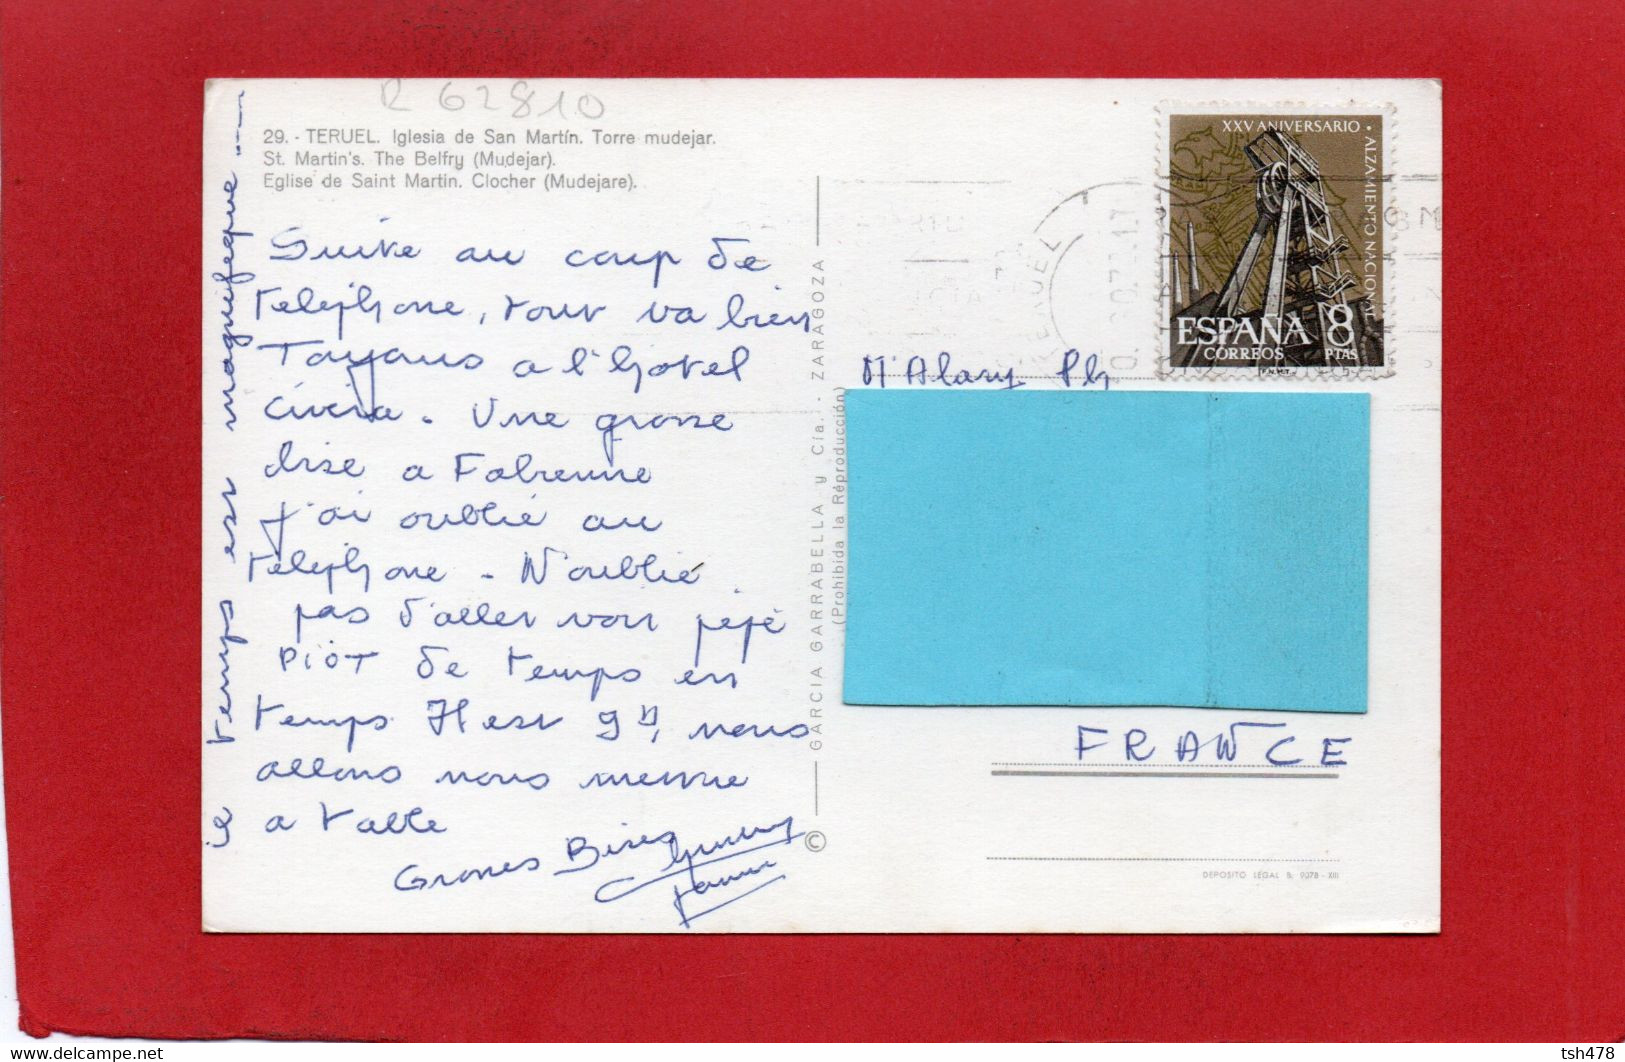 R 62810
29. - TERUEL. Iglesia de San Martín. Torre mudejar.
St. Martin's. The Belfry (Mudejar).
Eglise de Saint Martin. Clocher (Mudejare).
Suite au coup de
telephone, tout va bien
Toujours a l'hotel
Civera. Une grosse
bise a Fabienne
j'ai oublié au
telephone. N'oublie
pas d'aller voir pépé
PIOT de temps en
temps Il est 9h, nous
allons nous mettre
a table
Grosses Bises
le temps est magnifique
GARCIA GARRABELLA y Cía. - ZARAGOZA
(Prohibida la Reproducción)
©
XXV ANIVERSARIO • ALZAMIENTO NACIONAL
ESPAÑA 8
CORREOS PTAS
F.N.M.T.
TERUEL
Mr Alary Ph
FRANCE
DEPOSITO LEGAL B. 9078 - XIII
tsh478